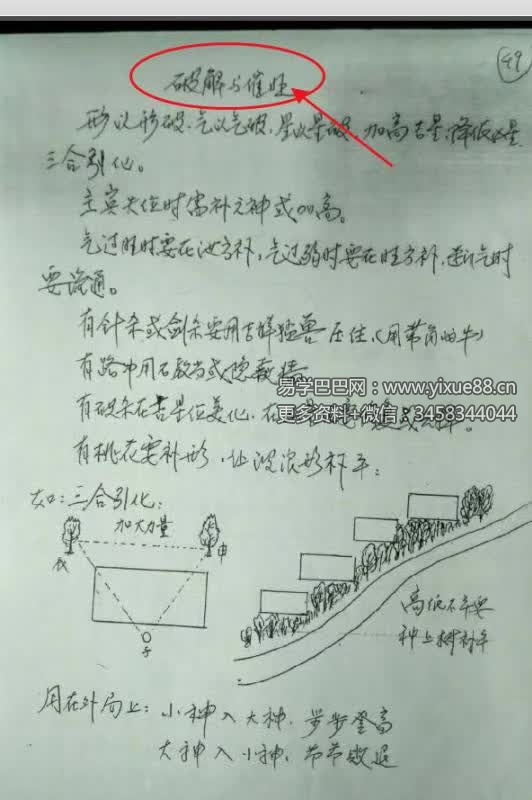 49
破解与催旺
形以形破,气以气破,星以星破,加高吉星,降低凶星
三合引化。
主宾失位时需补元神或加高。
气过旺时要在泄方补,气过弱时要在旺方补,断气时
要沟通。
有针杀或剑杀要用吉祥猛兽压住,(用带角的牛)
有路冲用石敢当或隐蔽墙
易学巴巴网:www.yixue88.cn
有破杀在吉星位美化,在
更多资料+微信:3458344044
有桃花要补形,让波浪形补平:
如:三合引化:
加大力量
辰 申
子
高低不平要
种上树补平
用在外局上:小神入大神,步步登高
大神入小神,节节败退